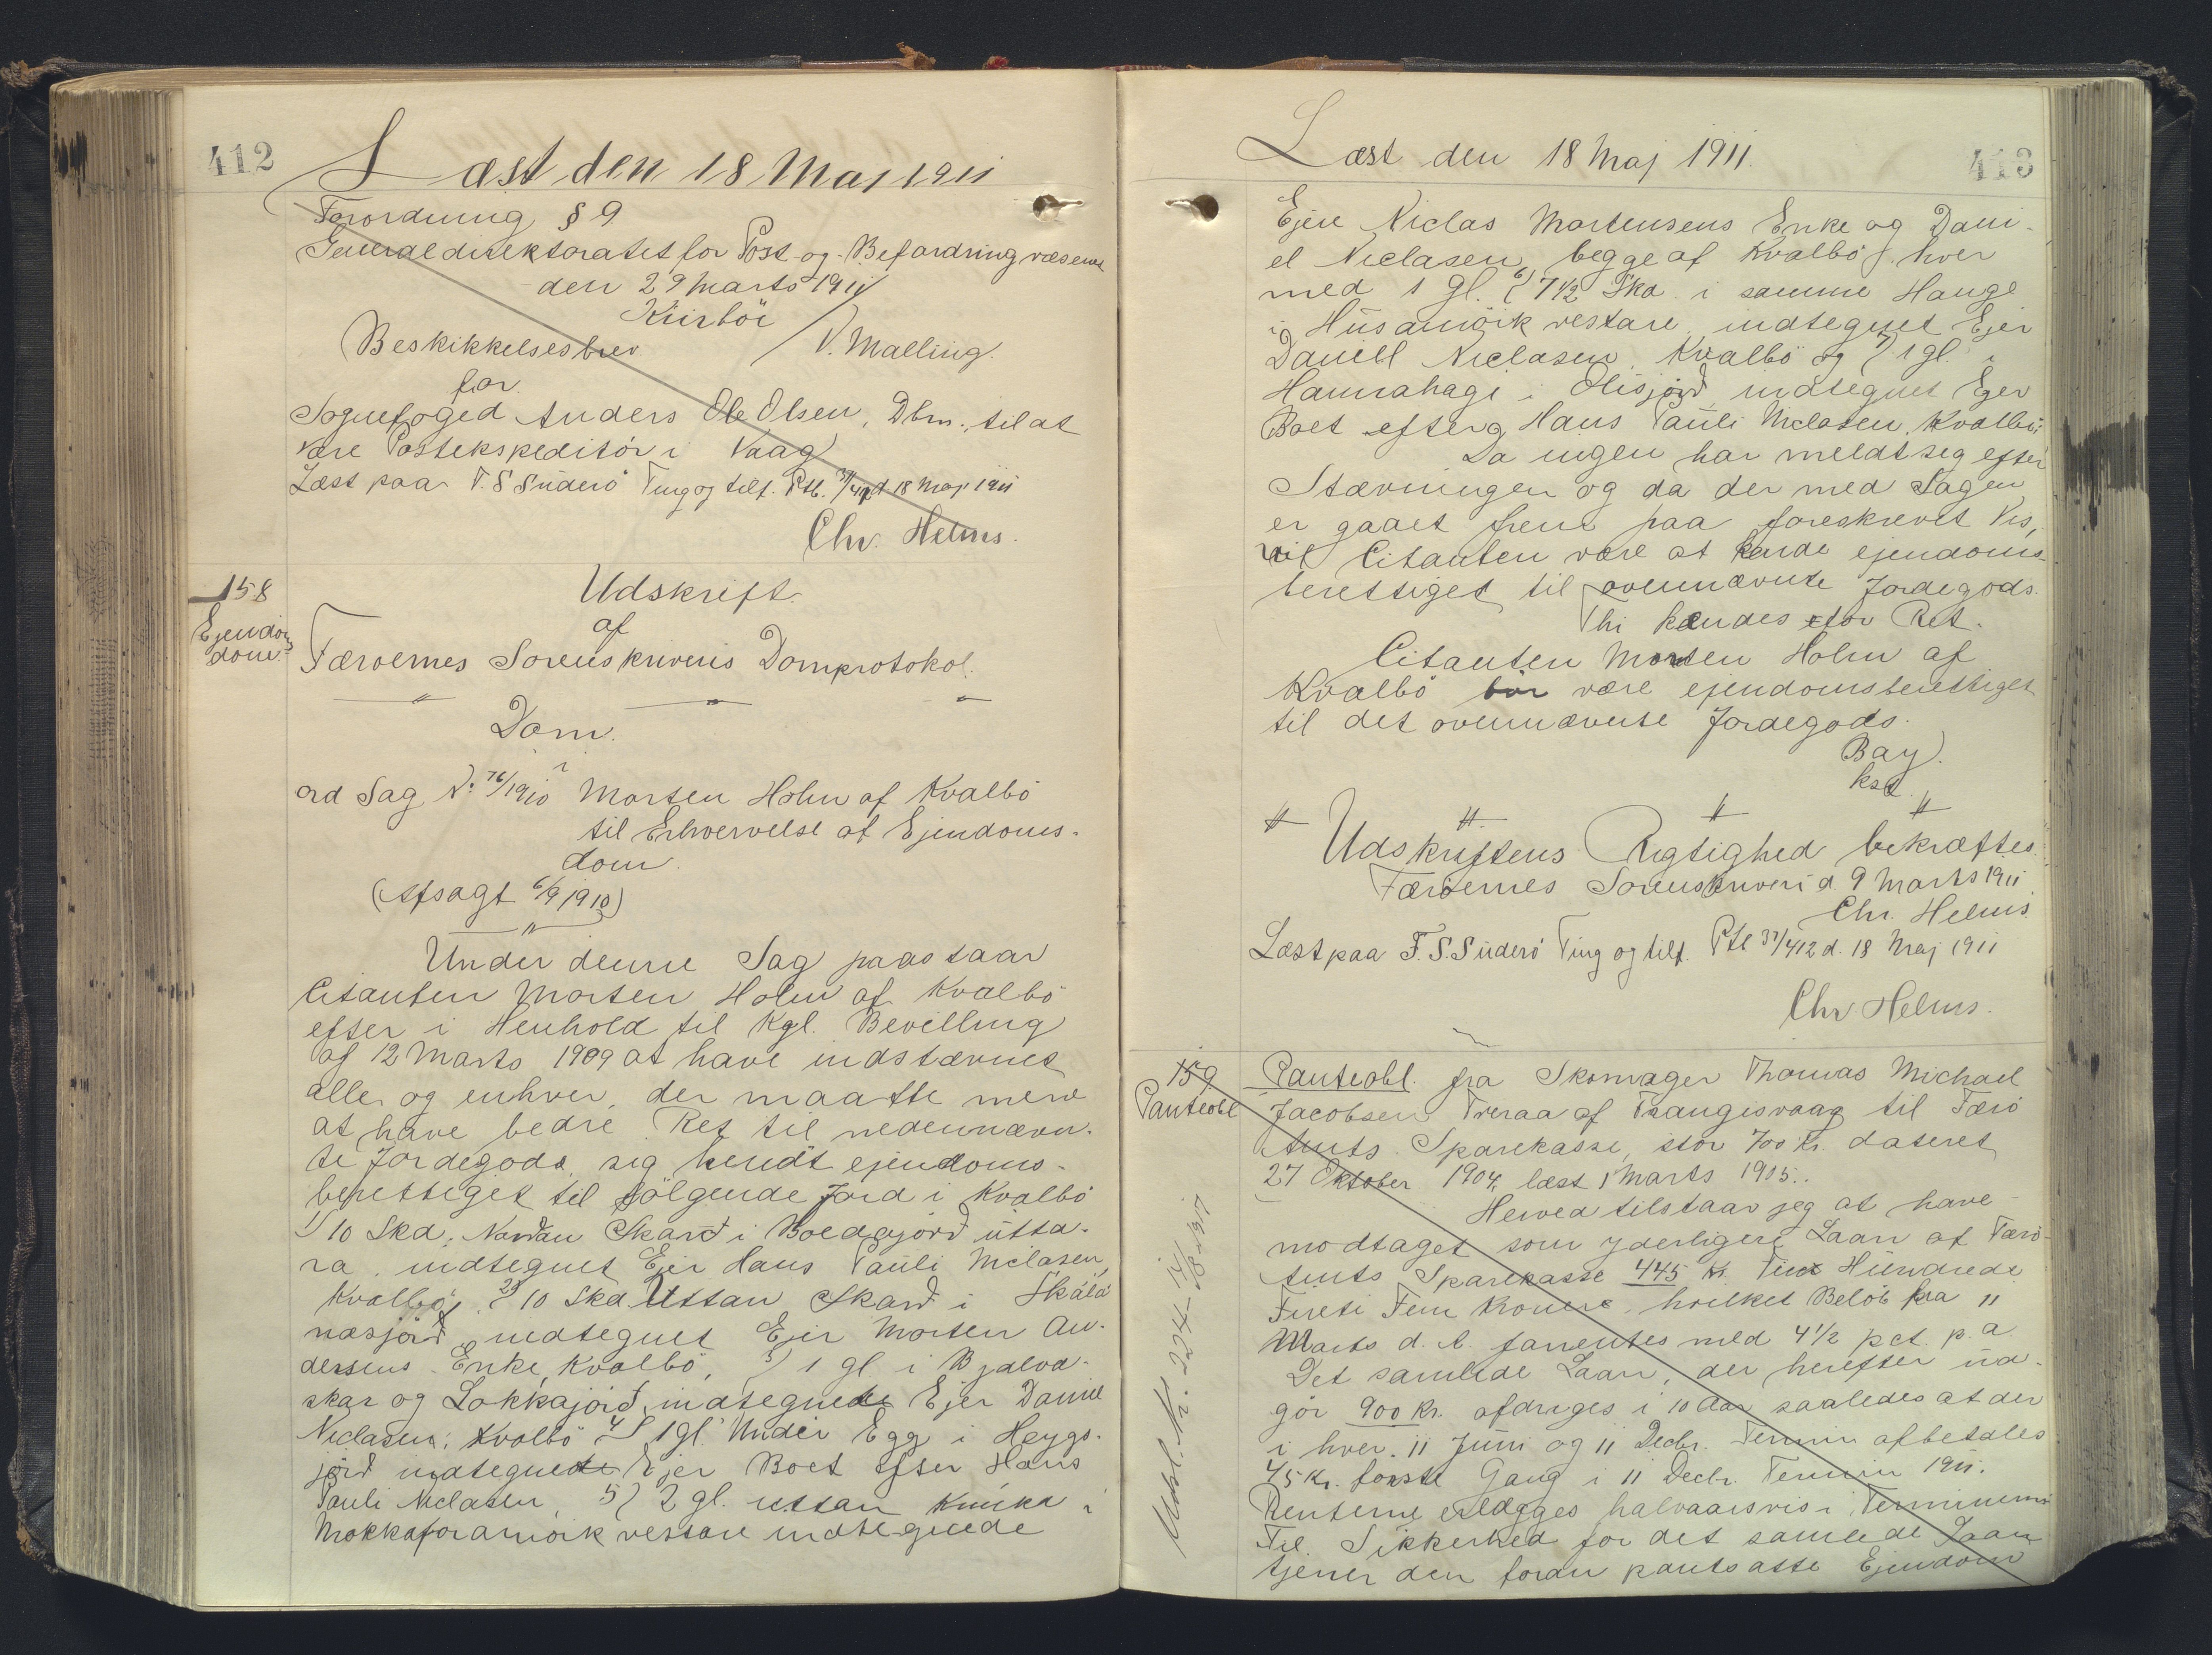 412
Læst den 18 Maj 1911
Forordning § 9
Generaldirektoratet for Post- og Befordringsvæsenet
den 29 Marts 1911
Kiirböe
Beskikkelsesbrev / V. Malling.
for
Sognefoged Anders Ole Olsen, Dbm., til at
være Postekspeditör i Vaag
Læst paa F. S Süderö Ting og tilf. Ptb. 37/412 d 18 Maj 1911
Chr. Helms.
158
Ejendoms
dom
Udskrift
af
Færöernes Sorenskriveris Domprotokol.
Dom.
i
ad Sag No 76/1910 Morten Holm af Kvalbö
til Erhvervelse af Ejendoms-
dom.
(Afsagt 6/9 1910)
Under denne Sag paastaar
Citanten Morten Holm af Kvalbö
efter i Henhold til Kgl. Bevilling
af 12 Marts 1909 at have indstævnet
alle og enhver, der maatte mene
at have bedre Ret til nedennævn-
te Jordegods, sig kendt ejendoms-
berettiget til fölgende Jord i Kvalbö
1) 10 Skd. Nordan Skard i Boedajörd útta-
ra, indtegnet Ejer Hans Pauli Niclasen,
Kvalbö, 2) 10 Skd Uttan Skard i Skála
næsjörd, indtegnet Ejer Morten An-
dersens Enke, Kvalbö, 3) 1 gl i Bjalva-
skar og Lokkajörd, indtegnede Ejer Daniel
Niclasen, Kvalbö 4) 1 gl. Undir Egg i Heygs-
jörd indtegnede Ejer Boet efter Hans
Pauli Niclasen, 5) 2 gl. uttan Kníka i
Mokkaforamörk vestare indtegnede
413
Læst den 18 Maj 1911.
Ejere Niclas Mortensens Enke og Dani-
el Niclasen, begge af Kvalbö, hver
med 1 gl. 6) 7 1/2 Skd i samme Hauge
i Húsamörk vestare, indtegnet Ejer
Daniel Niclasen, Kvalbö og 7) 1 gl. i
Hamrahagi i Olisjörd, indtegnet Ejer
Boet efter Hans Pauli Niclasen, Kvalbö.
Da ingen har meldt sig efter
Stævningen og da der med Sagen
er gaaet frem paa foreskrevet Vis,
vil Citanten være at kende ejendoms-
berettiget til ovennævnte Jordegods.
Thi kendes for Ret.
Citanten Morten Holm af
Kvalbö bör være ejendomsberettiget
til det ovennævnte Jordegods.
Bay.
kst.
Udskriftens Rigtighed bekræftes.
Færöernes Sorenskriveri d. 9 Marts 1911
Chr. Helms.
Læst paa F. S. Süderö Ting og tilf. Ptb 37/412 d. 18 Maj 1911
Chr Helms.
159
Panteobl
Panteobl. fra Skomager Thomas Michael
Jacobsen Treraa af Trangisvaag til Færö
Amts Sparekasse, stor 700 Kr. dateret
27 Oktober 1904, læst 1 Marts 1905.
Herved tilstaar jeg at have
modtaget som yderligere Laan af Færö
Amts Sparekasse 445 Kr. Fire Hundrede
Fireti Fem Kroner, hvilket Belöb fra 11
Marts d. A. forrentes med 4 1/2 pct. p. a.
Det samlede Laan, der herefter ud-
gör 900 Kr. afdrages i 10 Aar saaledes at der
i hver 11 Juni og 11 Decbr. Termin afbetales
45 Kr. förste Gang i 11 Decbr. Termin 1911.
Renterne erlægges halvaarsvis i Terminerne
Til Sikkerhed for det samlede Laan
tjener den foran pantsatte Ejendom